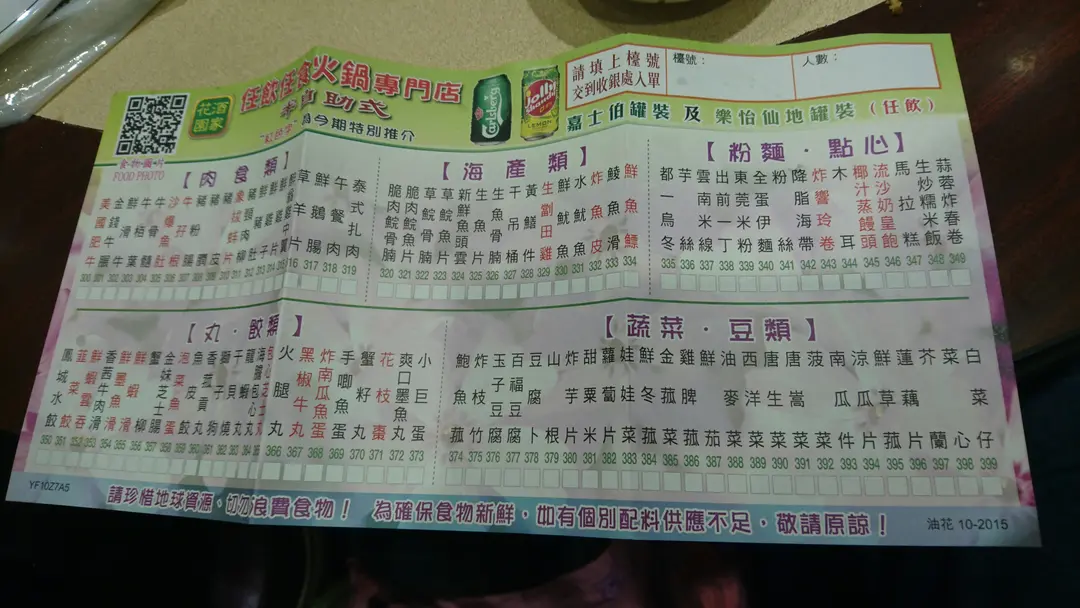 花酒園家
任飲任食火鍋專門店
半自助式
"紅色字"為今期特別推介
食物圖片
FOOD PHOTO
Carlsberg
Jolly Shandy
LEMON
請填上檯號
交到收銀處入單
檯號：
人數：
嘉士伯罐裝 及 樂怡仙地罐裝（任飲）
【肉食類】
美國肥牛 300
鮮牛滑 302
牛柏葉 303
牛孖根
豬粉腸
豬潤
豬皮
草羊片 316
鮮鵝腸 317
午餐肉 318
泰式扎肉 319
【海產類】
脆肉鯇魚腩 320
新鮮魚頭雲 324
生魚片 325
生魚骨腩 326
干吊桶 327
黃鱔件 328
生劏田雞 329
鮮魷魚 330
水魷魚 331
炸魚皮 332
鯪魚滑 333
鮮魚鰾 334
【粉麵．點心】
都一烏冬 335
芋絲 336
雲南米線 337
出前一丁 338
東莞米粉 339
全蛋伊麵 340
粉絲 341
降脂海帶 342
炸響玲卷 343
木耳 344
椰汁蒸饅頭 345
流沙奶皇飽 346
馬拉糕 347
生炒糯米飯 348
蒜蓉炸春卷 349
【丸．餃類】
鳳城水餃 350
韮菜餃 351
鮮蝦雲吞 352
香茜牛肉滑 353
鮮墨魚滑 354
鮮蝦滑 355
蟹柳 356
金妹芝士腸 357
泡菜魚蛋 358
魚皮餃 359
香菇貢丸 360
獅子狗 361
干貝燒 362
火腿 366
黑椒牛丸 367
炸南瓜魚蛋 368
手唧魚蛋 369
蟹籽丸 370
花枝棗 371
爽口墨魚丸 372
小巨蛋 373
【蔬菜．豆類】
鮑魚菇 374
炸枝竹 375
玉子豆腐 376
百福豆腐 377
豆卜 378
山根 379
炸芋片 380
甜粟米 381
蘿蔔片 382
娃娃菜 383
鮮冬菇 384
金菇菜 385
雞脾菇 386
鮮茄 387
油麥菜 388
西洋菜 389
唐生菜 390
唐蒿菜 391
菠菜 392
南瓜件 393
涼瓜片 394
鮮草菇 395
蓮藕片 396
芥蘭 397
菜心 398
白菜仔 399
YF10Z7A5
請珍惜地球資源，切勿浪費食物！ 為確保食物新鮮，如有個別配料供應不足，敬請原諒！
油花 10-2015